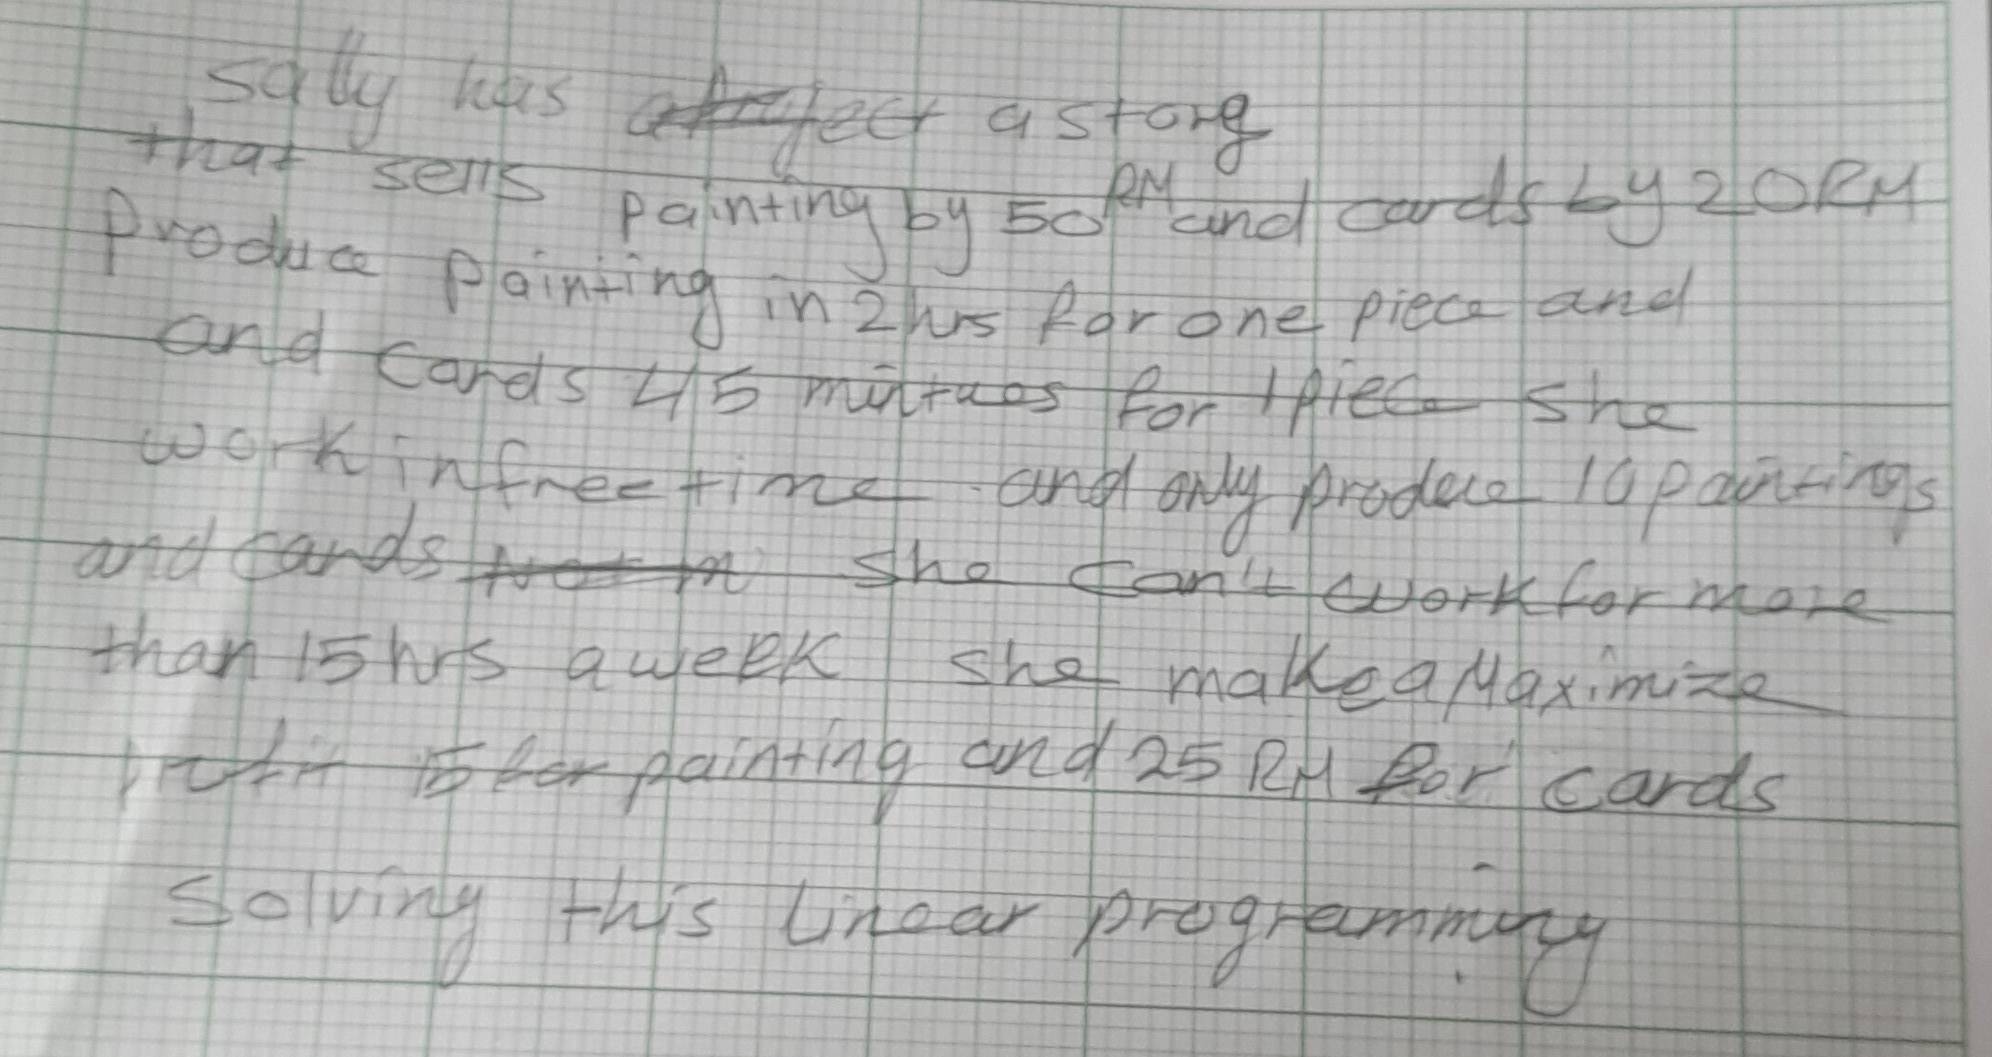 Sally has a storg
that sells painting by 50 RM and cards by 20RM
Produce painting in 2hrs for one piece and
and cards 45 mintues for 1 piece she
work in free time and only produce 10 paintings
and cards she can't work for more
than 15 hrs a week she make a Maximize
15 for painting and 25 RM for cards
Solving this linear programming